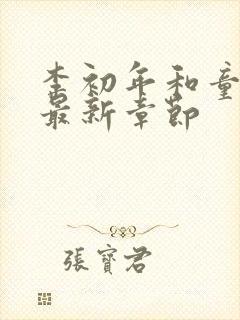 李初年和童
最新章节
張寶君